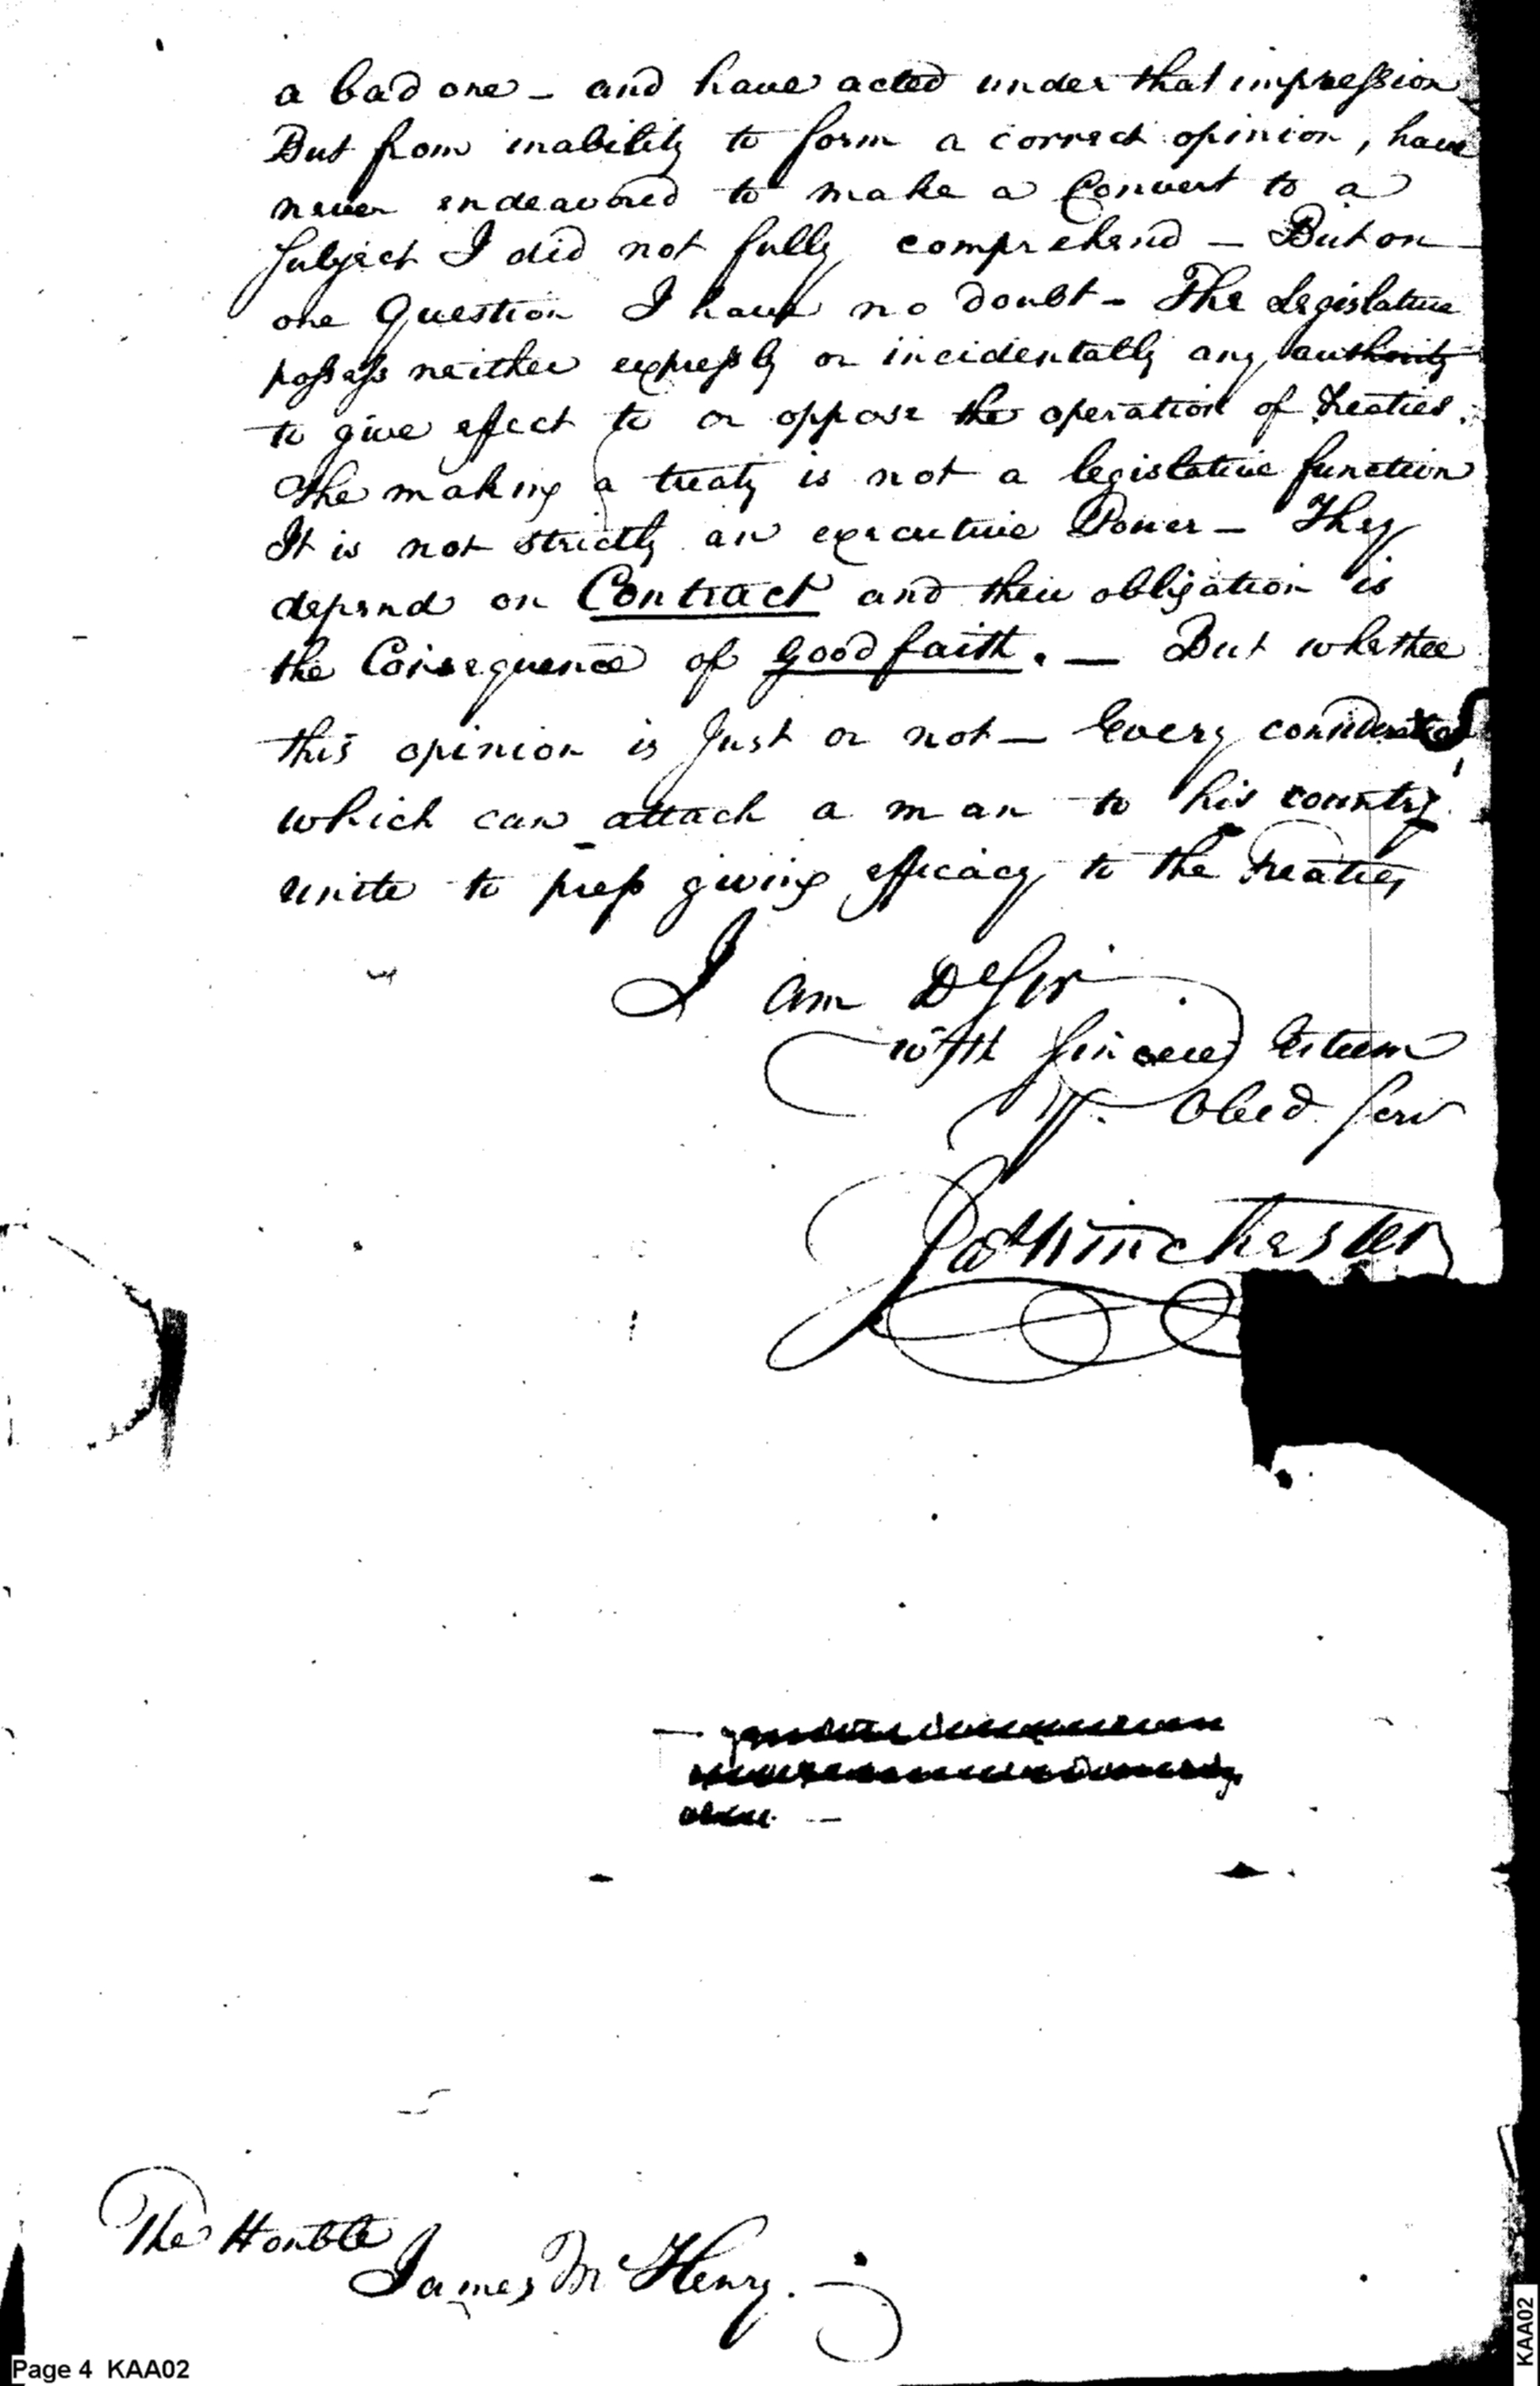 a bad one – and have acted under that impression
But from inability to form a correct opinion, have
never endeavored to make a Convert to a
subject I did not fully comprehend – But on
one Question I have no doubt – The Legislature
possess neither expressly or incidentally any authority
to give effect to or oppose the operation of Treaties.
The making a treaty is not a legislative function
It is not strictly an executive Power – They
depend on Contract and their obligation is
the Consequence of good faith. – But whether
this opinion is Just or not – Every consideration
which can attach a man to his country
unite to press giving efficacy to the Treaties
I am D Sir
with sincere Esteem
Yr. Obed. Serv
Jas Winchester
The Honble
James McHenry.
Page 4 KAA02
KAA02